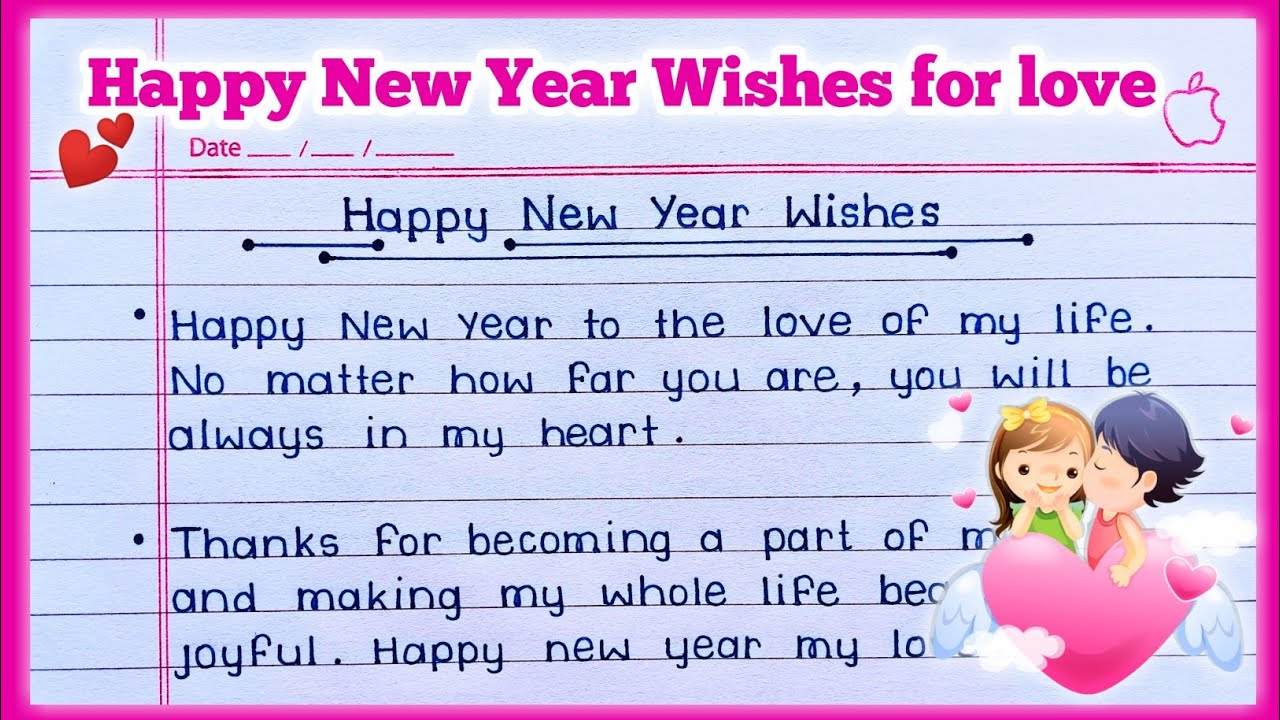 Happy New Year Wishes for love
Date ___ / ___ / _____
Happy New Year Wishes
• Happy New Year to the love of my life.
No matter how far you are, you will be
always in my heart.
• Thanks for becoming a part of
and making my whole life
joyful. Happy new year my